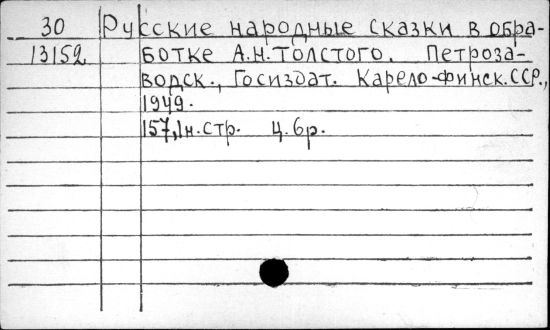 30 Русские народные сказки в обра-
13152 ботке А.Н.Толстого. Петроза-
водск., Госиздат. Карело-Финск.ССР.,
1949.
157,1н.стр. ц.6р.